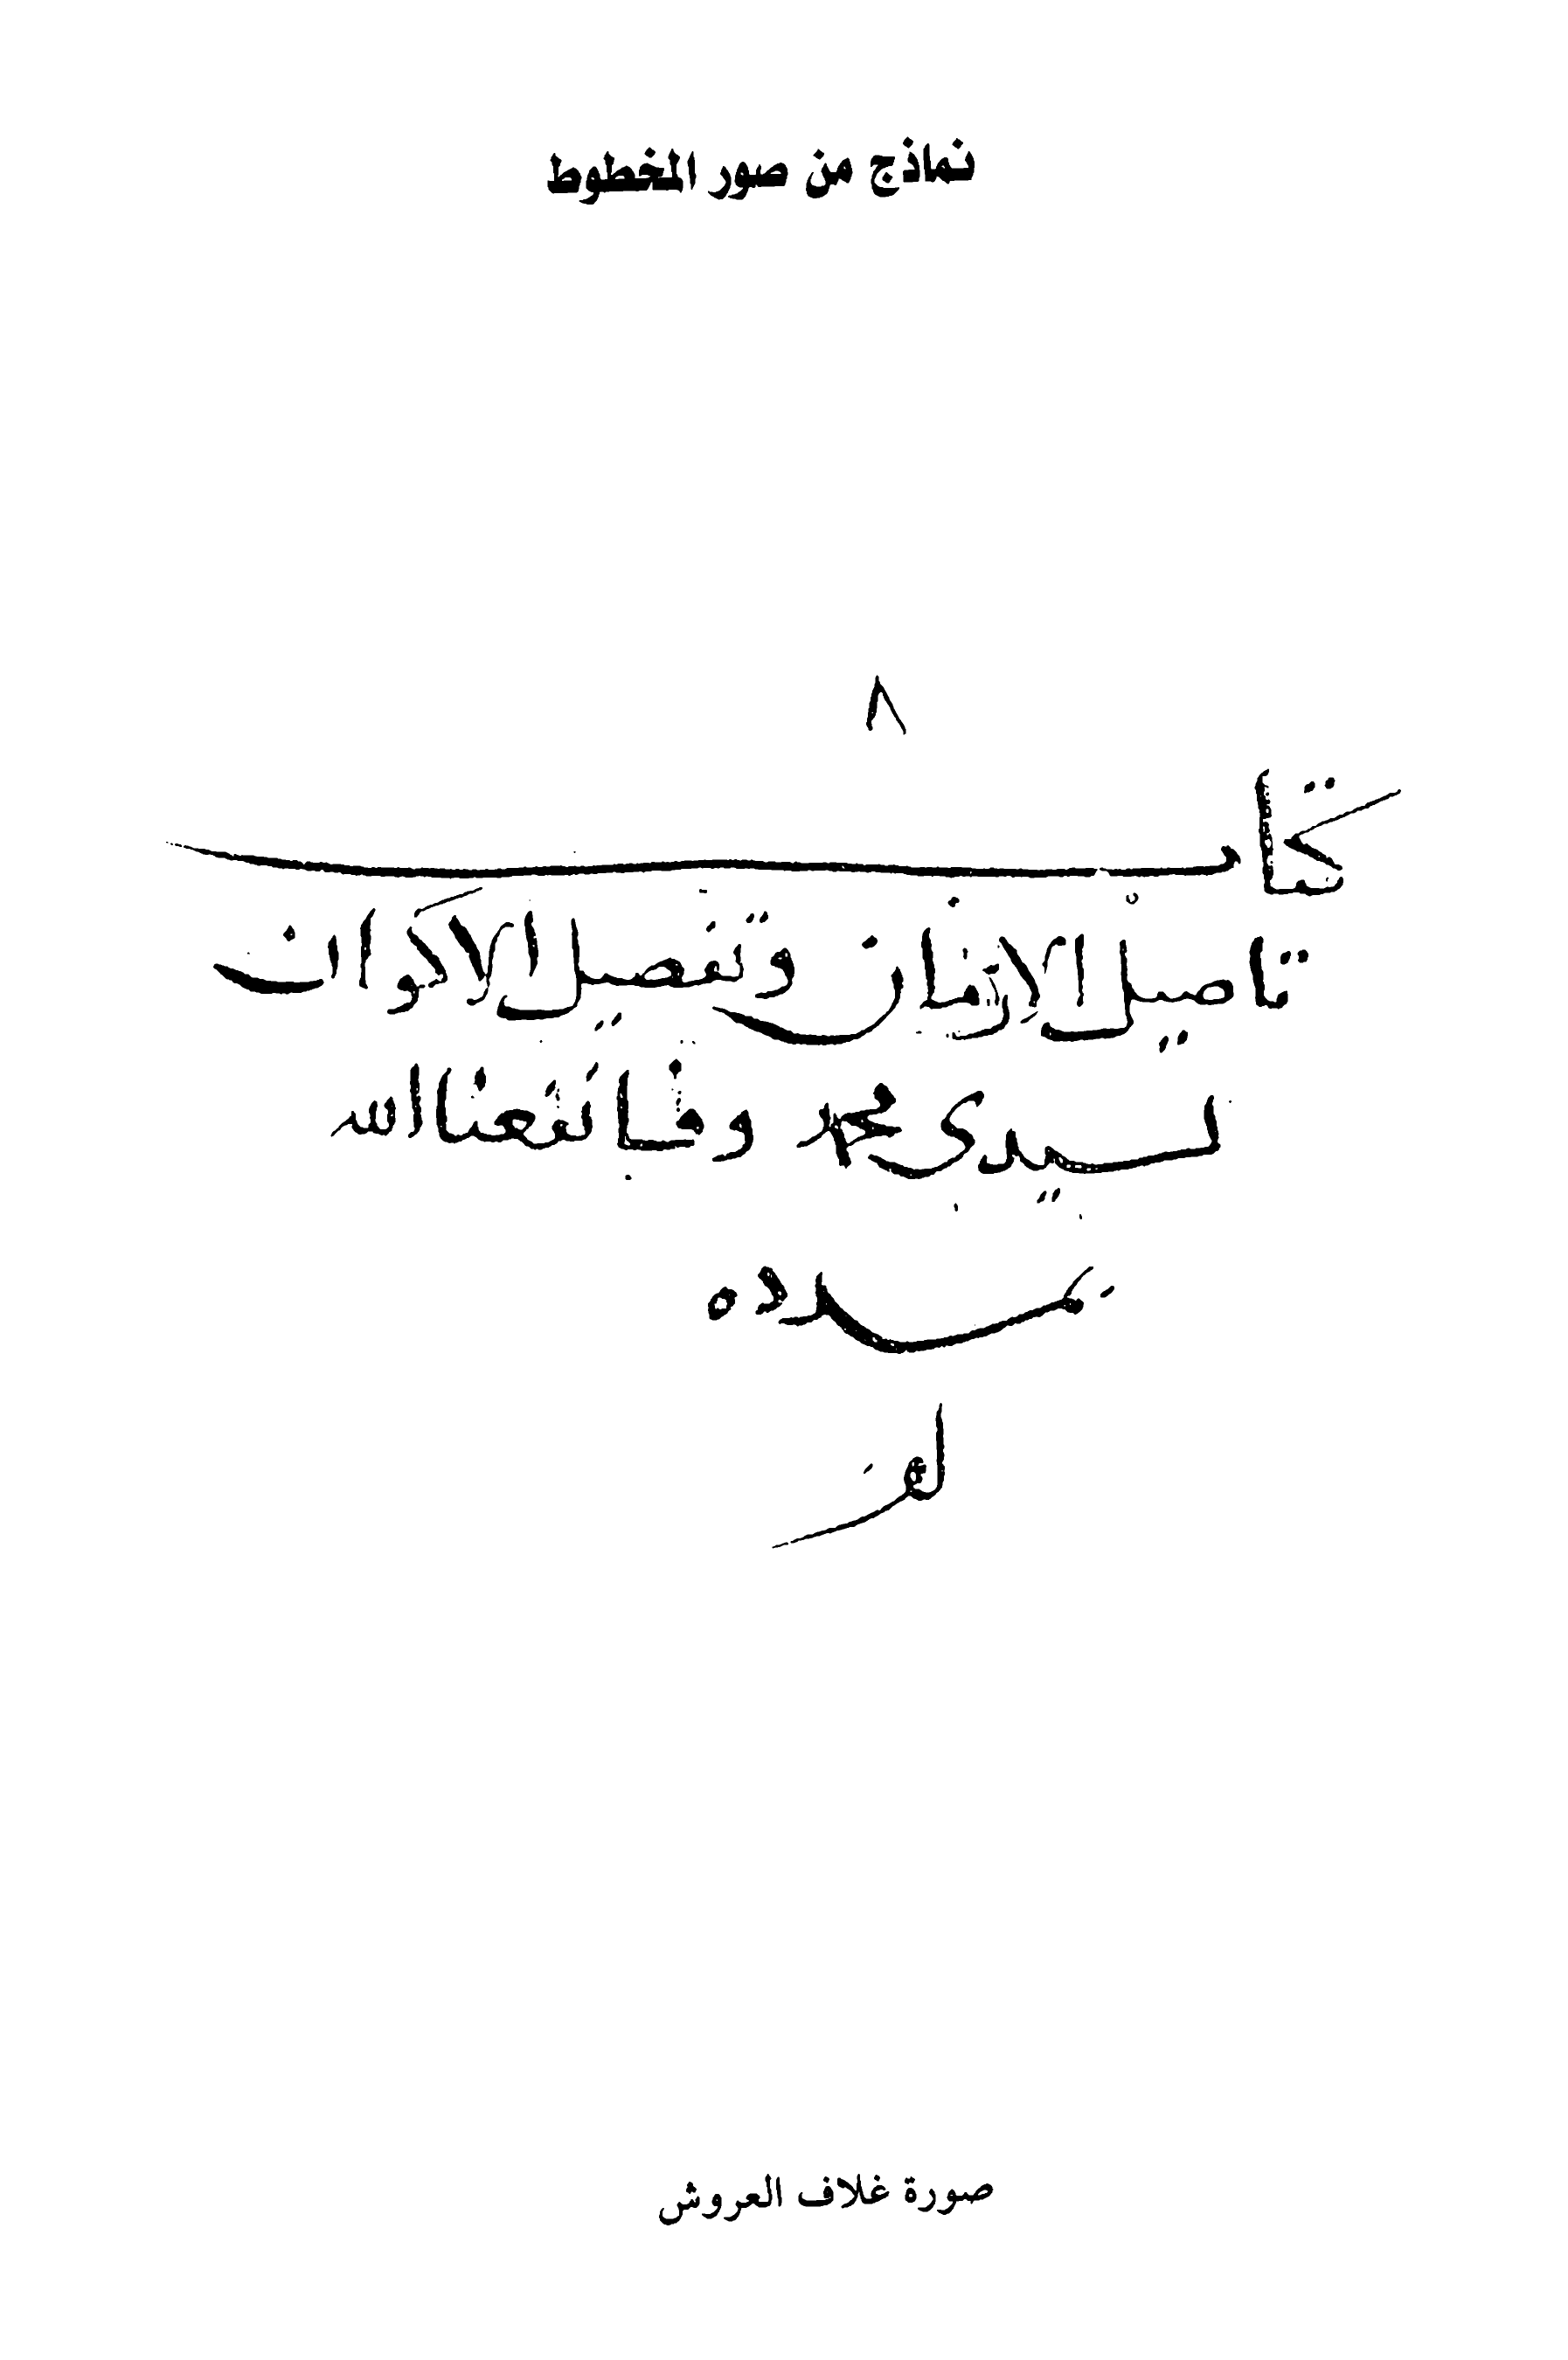 نماذج من صور المخطوط
٨
كتاب
تاصيل الازمان وتفصيل الاكوان
لسيدي محمد وفا نفعنا الله
بمدده
صورة غلاف العروش